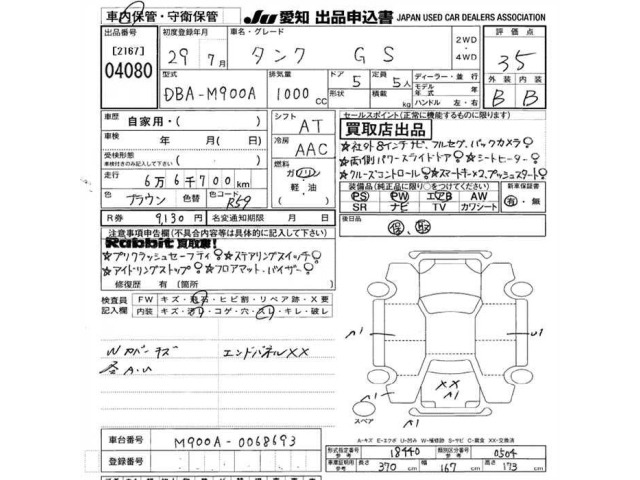 車内保管・守衛保管
JU 愛知 出品申込書 JAPAN USED CAR DEALERS ASSOCIATION
出品番号 初度登録年月 車名・グレード 2WD・4WD 評価点
[2167] 29年 7月 タンク GS 35
04080
型式 排気量 ドア 定員 ディーラー・並行 外装 内装
DBA-M900A 1000cc 5 5人 モデル年式 年 B B
形状 積載 kg ハンドル 左・右
車歴 自家用・( ) シフト AT
セールスポイント(正常に機能するものに限ります)
買取店出品
車検 年 月( 日) 冷房 AAC
☆社外8インチナビ、フルセグ、バックカメラ
☆両側パワースライドドア ☆シートヒーター
☆クルーズコントロール ☆スマートキー×2、プッシュスタート
受検形態 車検付きのみ記入下さい ( )
燃料 ガソリン・軽・油
走行 6万6千700km
色 ブラウン 色替 色コード R59
装備品(純正品に限り○をつけてください) 新車保証書
PS PW エアB AW 有・無
SR ナビ TV カワシート
R券 9,130円 名変通知期限 月 日
後日品 保、取
注意事項申告欄(不具合内容等は具体的に記入して下さい)
Rabbit 買取車!
☆プリクラッシュセーフティ ☆ステアリングスイッチ
☆アイドリングストップ ☆フロアマット・バイザー
修復歴 有(箇所 )
検査員記入欄 FW キズ・飛石・ヒビ割・リペア跡・X要
内装 キズ・汚レ・コゲ・穴・スレ・キレ・破レ
Wカバーキズ エンドパネルXX
A・U
A1 U1
XX
A1
A1 A1
スペア
A1
A-キズ E-エクボ U-凹み W-補修跡 S-サビ C-腐食 XX-交換済
車台番号 M900A-0068693
型式指定番号 参考 18440 類別区分番号 参考 0504
登録番号
車庫証明用 参考 長さ 370cm 幅 167cm 高さ 173cm